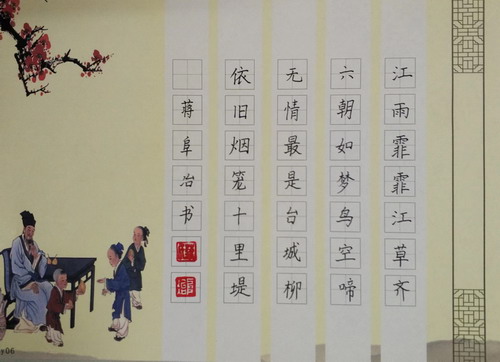 江雨霏霏江草齐
六朝如梦鸟空啼
无情最是台城柳
依旧烟笼十里堤
蒋阜冶书
y06